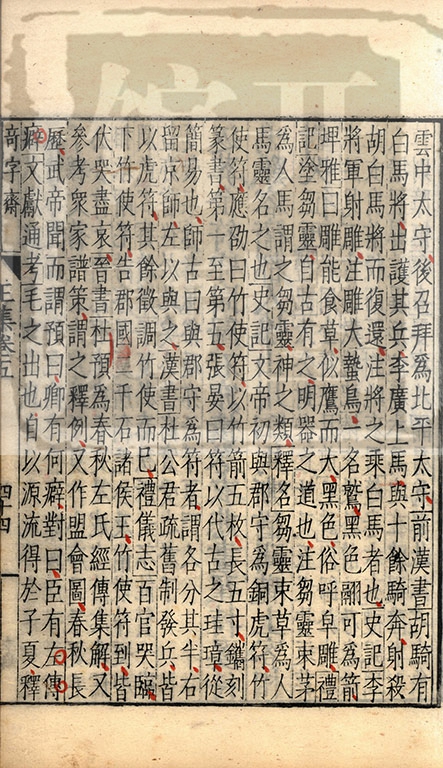 雲中太守後召拜為北平太守前漢書胡騎有
白馬將出護其兵李廣上馬與十餘騎奔射殺
胡白馬將而復還注將之乘白馬者也史記李
將軍射雕注雕大鷙鳥一名鷲黑色翮可為箭
埤雅曰雕能食草似鷹而大黑色俗呼皁雕禮
記塗芻靈自古有之明器之道也注芻靈束茅
為人馬謂之芻靈神之類釋名芻靈束草為人
馬靈名之也史記文帝初與郡守為銅虎符竹
使符應劭曰竹使符以竹箭五枚長五寸鐫刻
篆書第一至第五張晏曰符以代古之珪璋從
簡易也師古曰與郡守為符者謂各分其半右
留京師左以與之漢書杜公君疏舊制發兵皆
以虎符其餘徵調竹使而已禮儀志百官哭臨
下竹使符告郡國二千石諸侯王竹使符到皆
伏哭盡哀晉書杜預為春秋左氏經傳集解又
參考衆家譜第謂之釋例又作盟會圖春秋長
歷武帝聞而謂預曰卿有何癖對曰臣有左傳
癖文獻通考毛之出也自以源流得於子夏釋
奇字齋
四十四